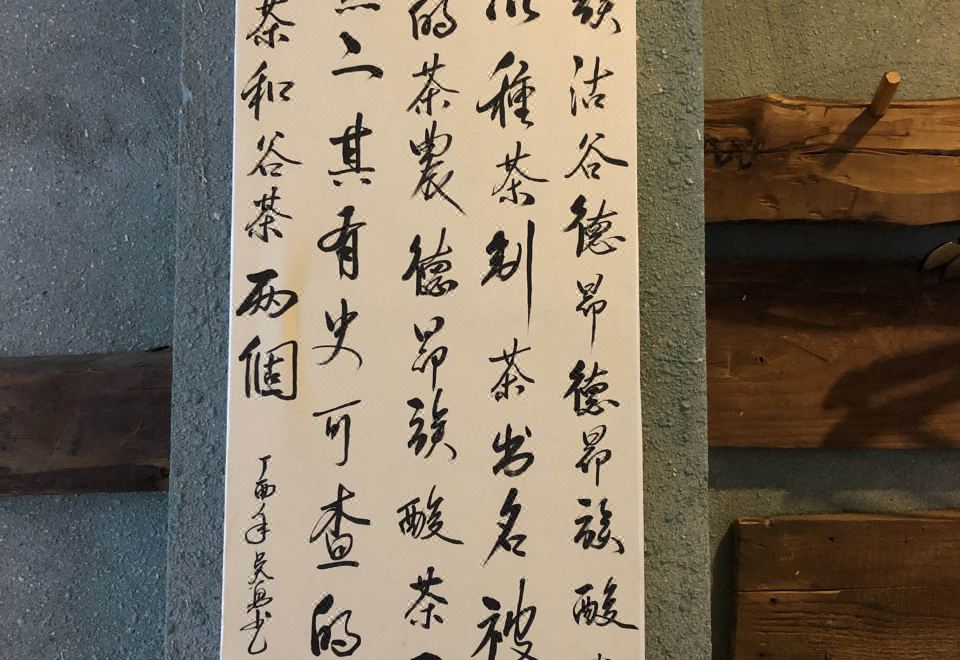 族沽谷德昂德昂族酸
以種茶制茶出名被
的茶農德昂族酸茶
二其有史可查的
茶和谷茶两個
丁酉年吴